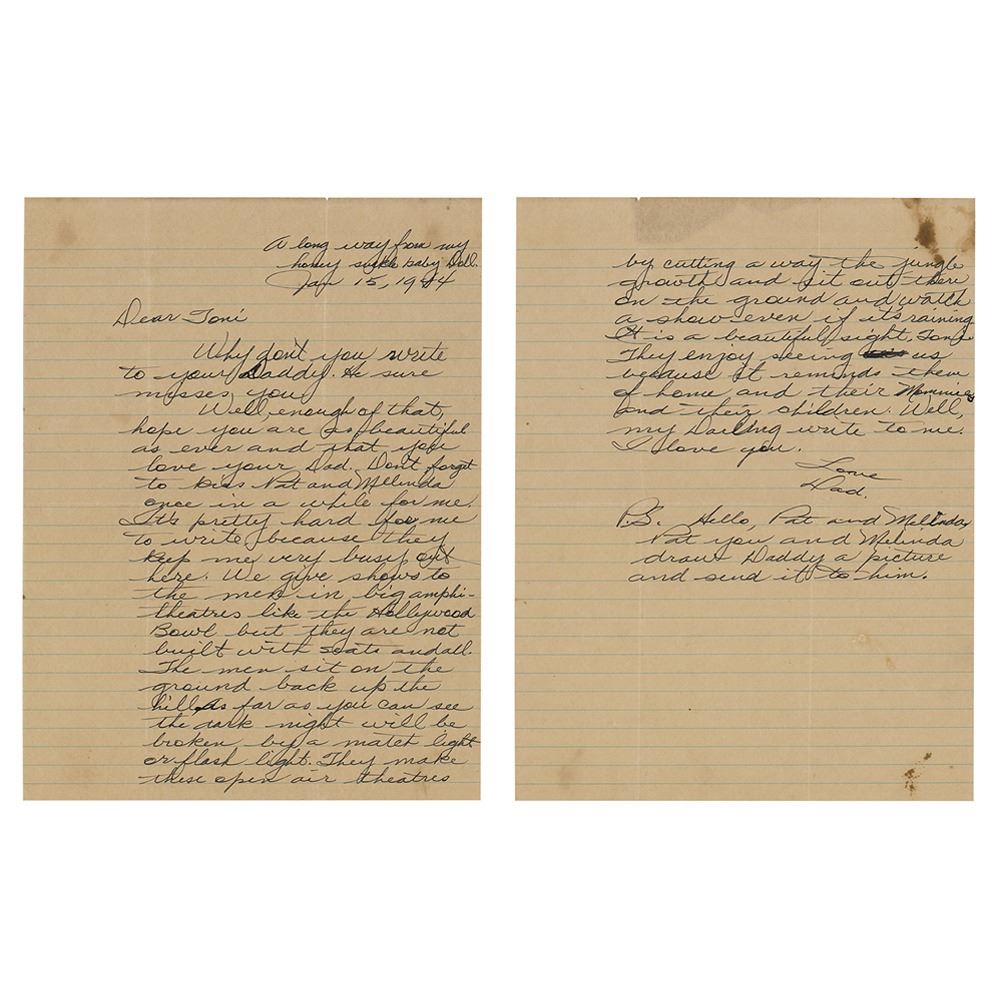 A long way from my
honey suckle baby Doll.
Jan 15, 1944
Dear Toni
Why don't you write
to your Daddy. He sure
misses you
Well, enough of that,
hope you are as beautiful
as ever and that you
love your Dad. Don't forget
to kiss Pat and Melinda
once in a while for me.
It's pretty hard for me
to write because they
keep me very busy out
here. We give shows to
the men in big amphi-
theatres like the Hollywood
Bowl but they are not
built with seats and all.
The men sit on the
ground back up the
hill, As far as you can see
the dark night will be
broken by a match light
or flash light. They make
these open air theatres
by cutting a way the jungle
growth and sit out there
on the ground and watch
a show even if its raining.
It is a beautiful sight, Toni.
They enjoy seeing us
because it reminds them
of home and their Mommies
and their children. Well,
my Darling write to me.
I love you.
Love
Dad.
P.S. Hello, Pat and Melinda
Pat you and Melinda
draw Daddy a picture
and send it to him.